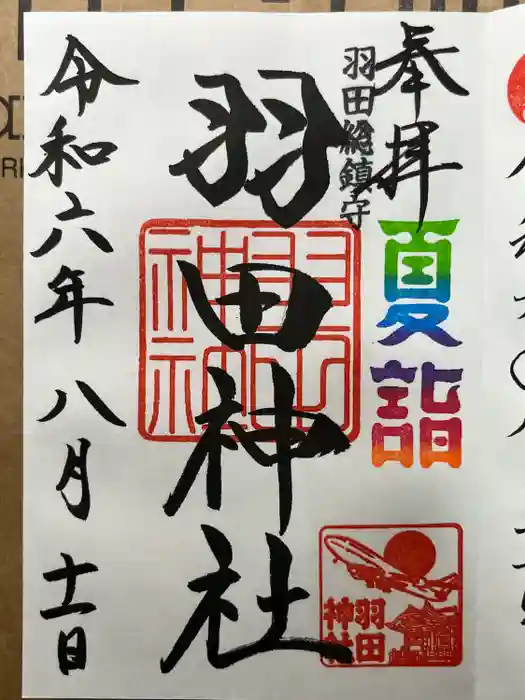 奉拝
羽田総鎮守
夏詣
羽田神社
羽田神社
羽田
神社
令和六年八月十一日